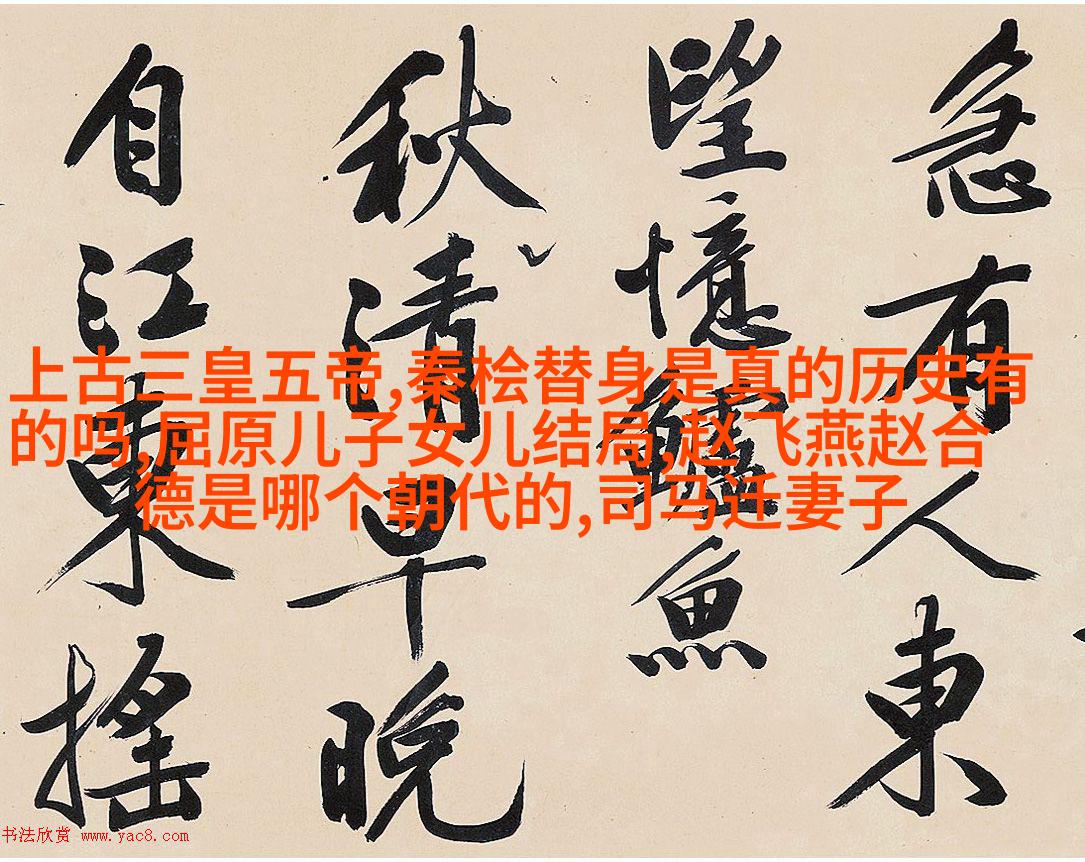 上古三皇五帝,秦桧替身是真的历史有
的吗,屈原儿子女儿结局,赵飞燕赵合
德是哪个朝代的,司马迁妻子
急有人東
望憶鱸魚
秋清早晚
自江東搖
书法欣赏 www.yac8.com